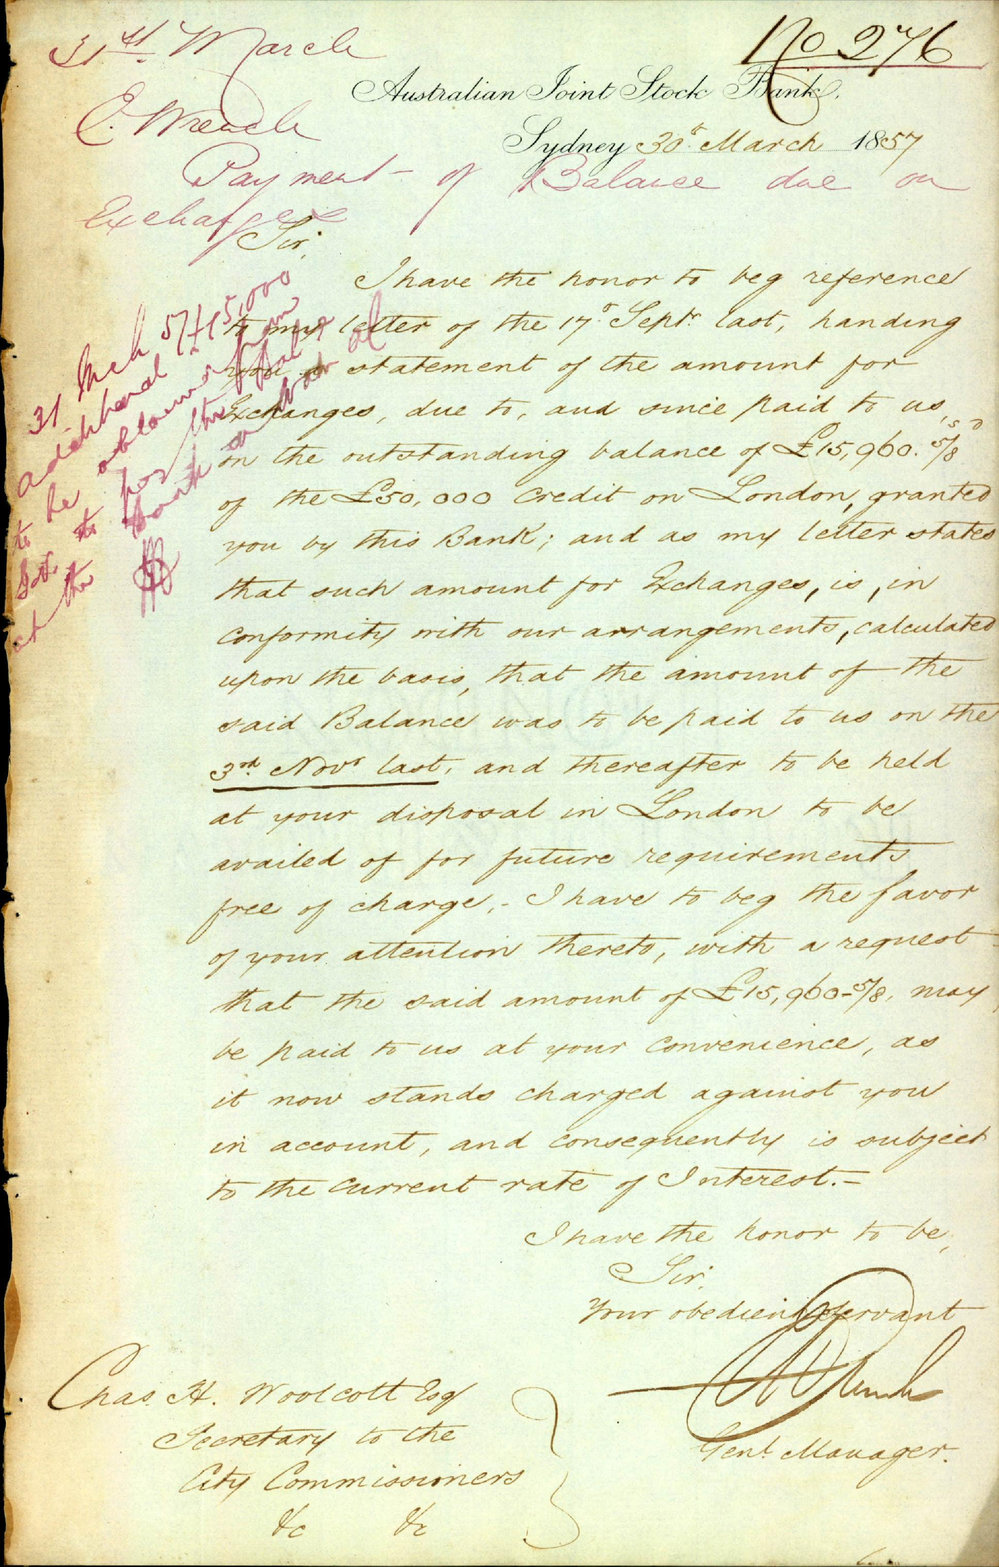 31st March
No 276
Australian Joint Stock Bank.
E. Wrench
Sydney 30th March 1857
Payment of Balance due on
Exchanges
Sir,
I have the honor to beg reference
to my letter of the 17th Septr last, handing
you a statement of the amount for
Exchanges, due to, and since paid to us,
on the outstanding balance of £15,960. 5s/8d
of the £50,000 Credit on London, granted
you by this Bank; and as my letter states
that such amount for Exchanges, is, in
conformity with our arrangements, calculated
upon the basis, that the amount of the
said Balance was to be paid to us on the
3rd Novr last, and thereafter to be held
at your disposal in London to be
availed of for future requirements
free of charge,- I have to beg the favor
of your attention thereto, with a request
that the said amount of £15,960-5/8, may
be paid to us at your convenience, as
it now stands charged against you
in account, and consequently is subject
to the current rate of Interest.-
I have the honor to be,
Sir,
Your obedient Servant
Genl Manager.
Chas. H. Woolcott Esq
Secretary to the
City Commissioners
&c &c
31 Mch 57 £15,000
additional
to be obtained from
Govt. to pay this balce
at the Bank